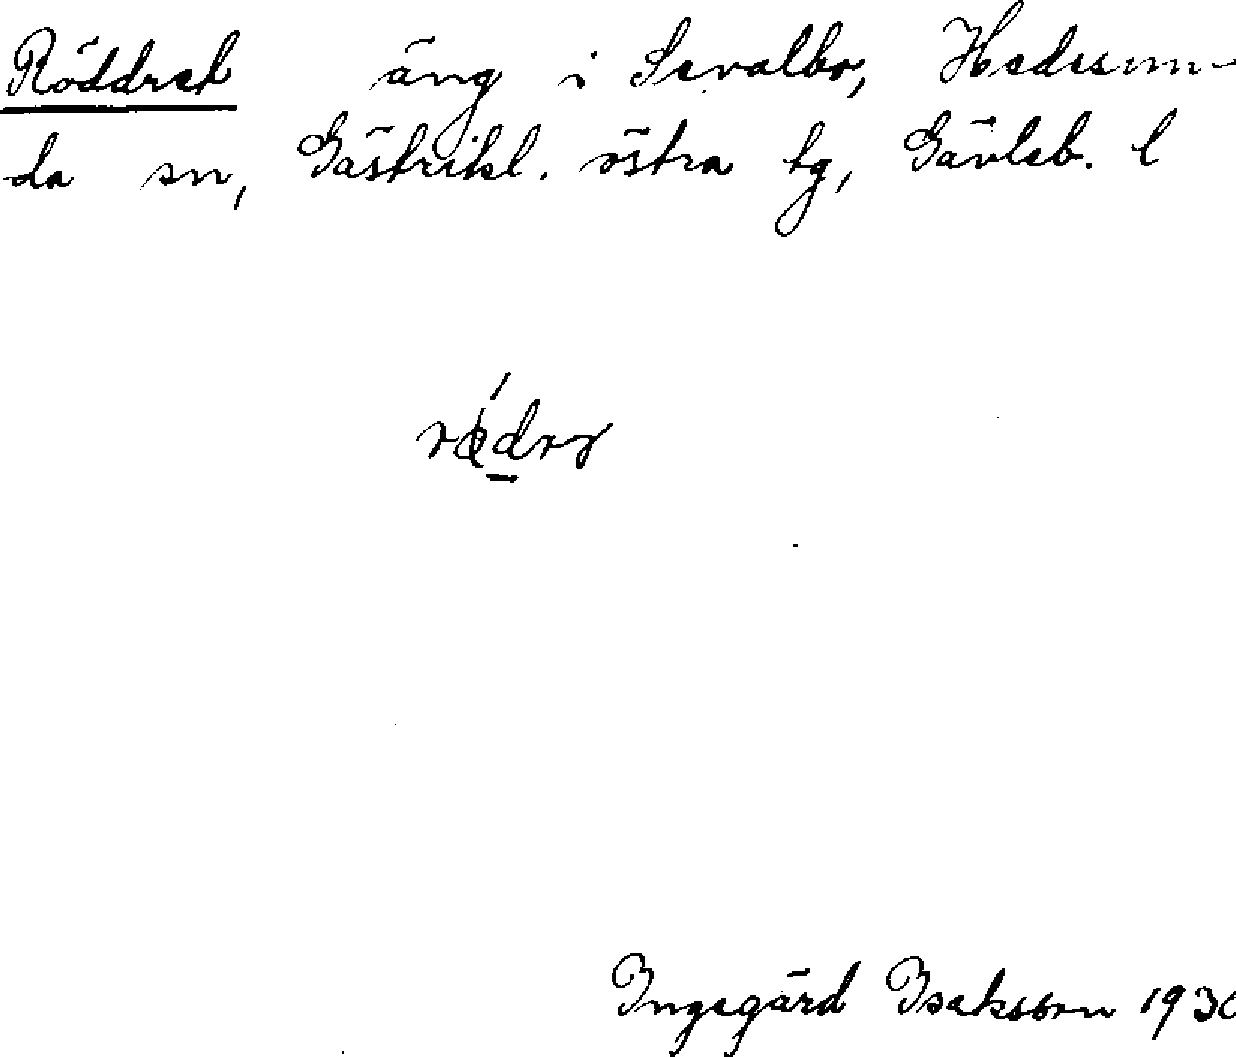 Röddret äng i Sevallbo, Hedesun-
da sn, Gästrikl. östra tg, Gävleb. l
Ingegärd Isaksson 1930